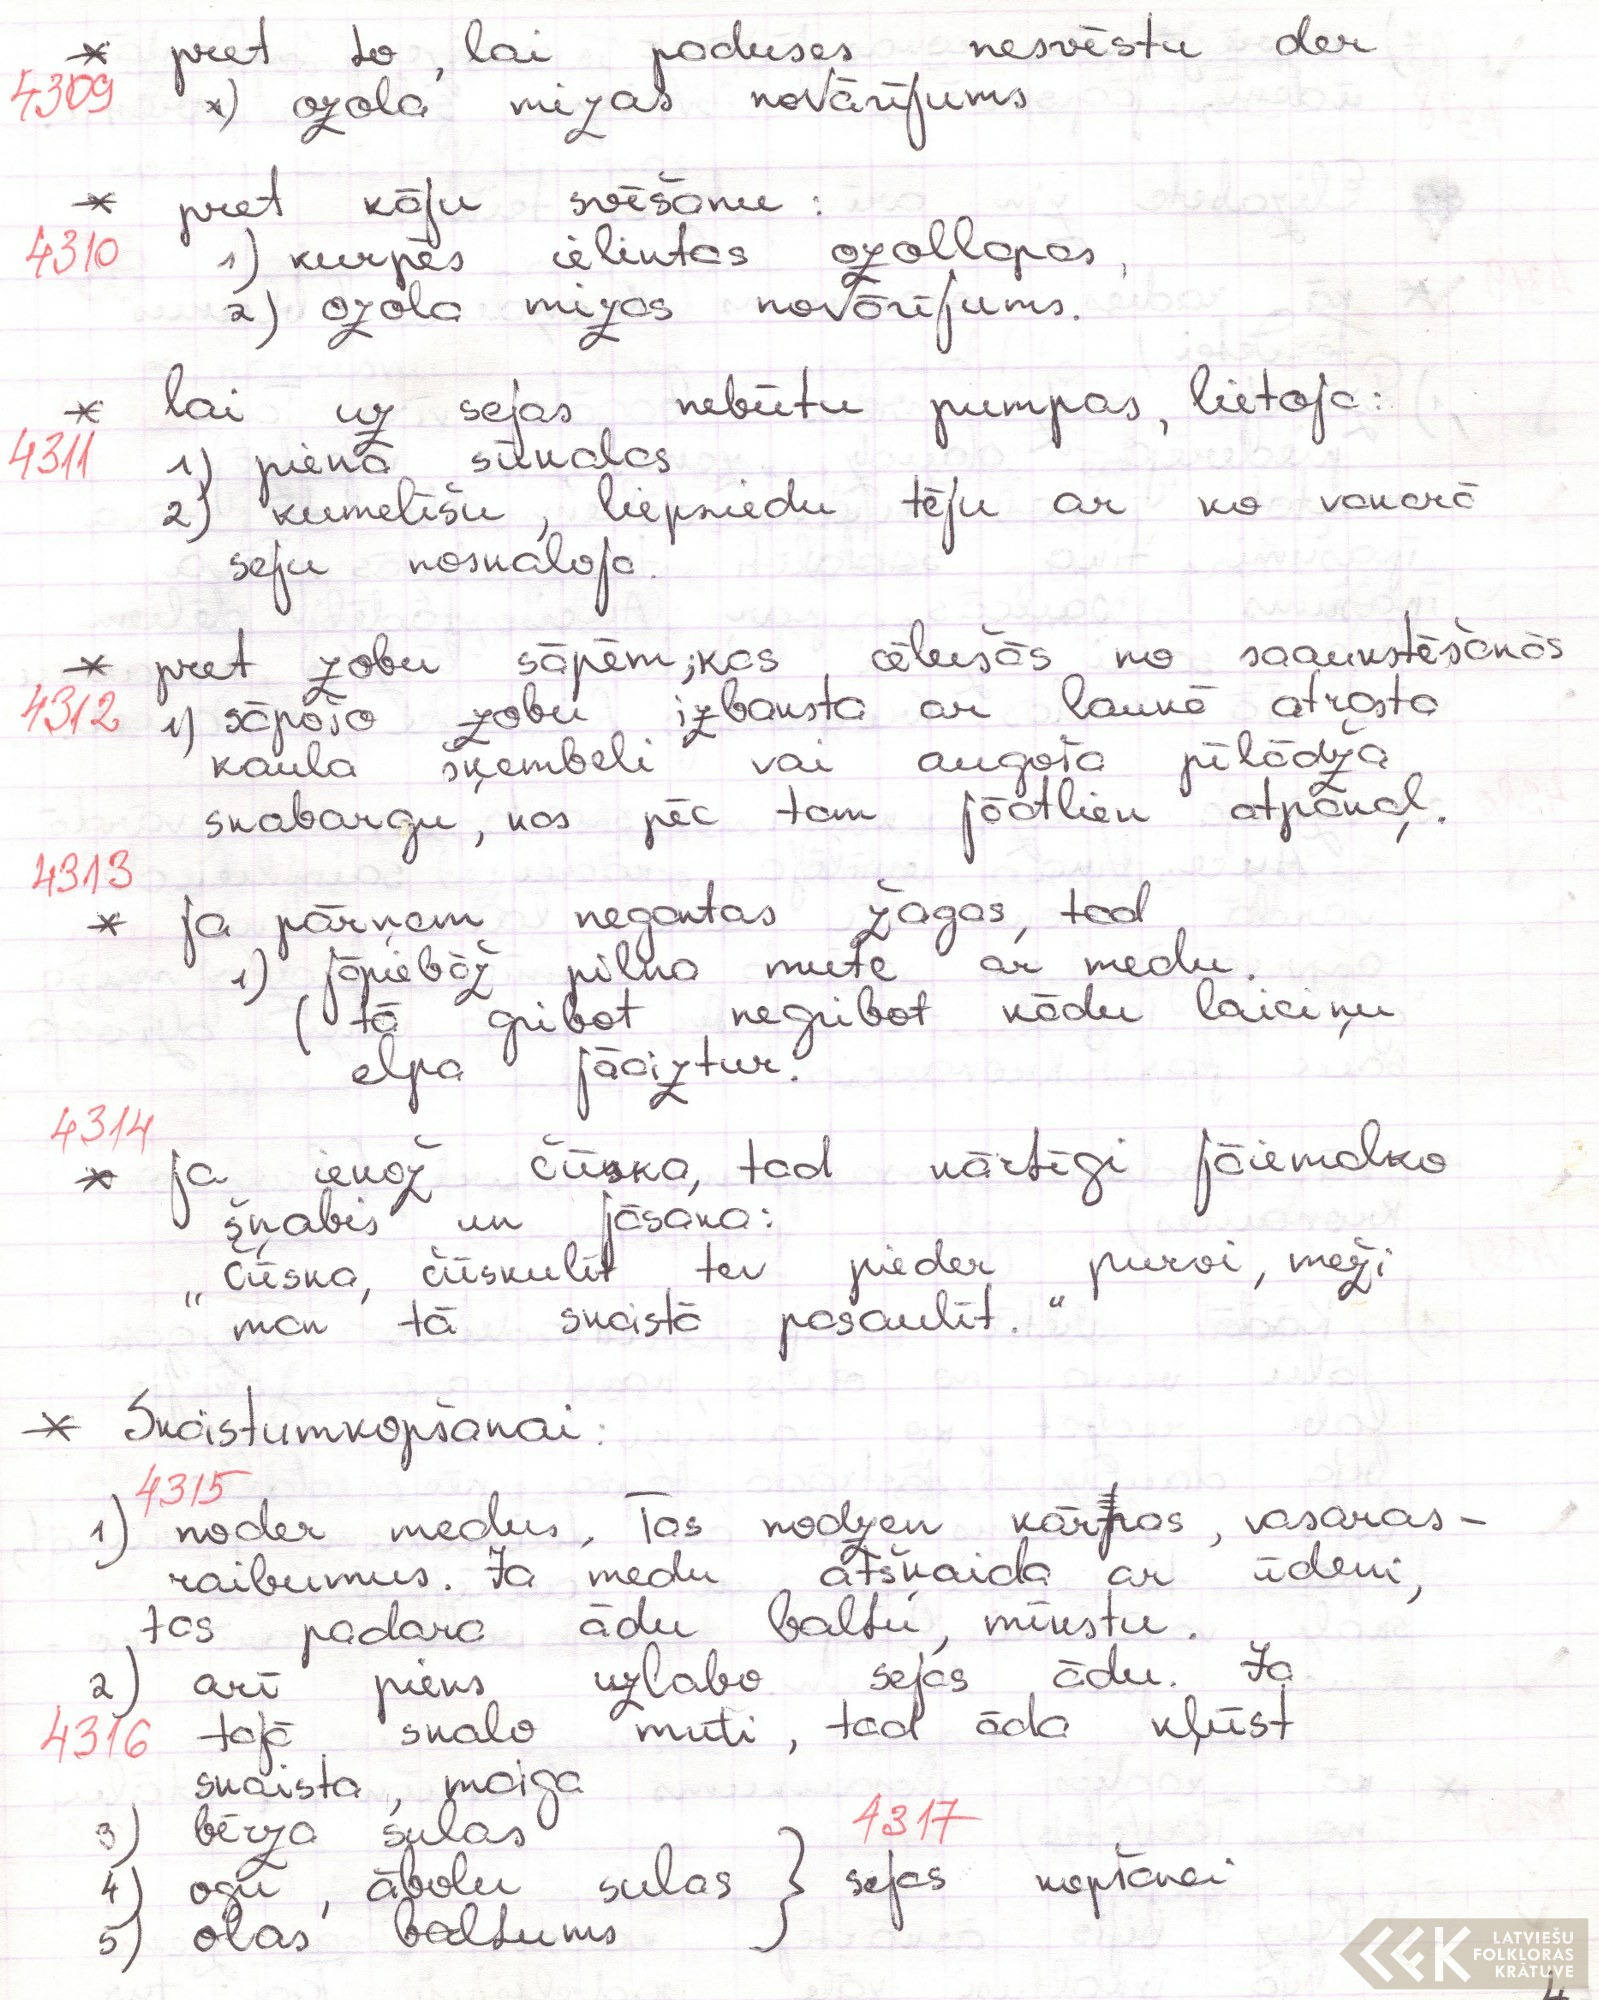 * pret to, lai paduses nesvēstu der
4309 *) ozola mizas novārījums
* pret kāju svīšanu:
4310 1) kurpēs ieliktas ozollapas,
2) ozola mizas novārījums.
* lai uz sejas nebūtu pumpas, lietoja:
4311 1) piena sūkalas
2) kumelīšu, liepziedu tēju ar ko vakarā
seju noskaloja.
* pret zobu sāpēm, kas cēlušās no saaukstēšanās
4312 1) sāpošo zobu izbaksta ar laukā atrasta
kaula šķembeli vai augoša pīlādža
skabargu, kas pēc tam jāatliek atpakaļ.
4313
* ja pārņem negantas žagas, tad
1) jāpiebāž pilna mute ar medu.
( tā gribot negribot kādu laiciņu
elpa jāaiztur.
4314
* ja iekož čūska, tad kārtīgi jāiemalko
šņabis un jāsaka:
"Čūska, čūskulīt tev pieder purvi, meži
man tā skaistā pasaulīt."
* Skaistumkopšanai:
4315
1) noder medus. Tas nodzen kārpas, vasaras-
raibumus. Ja medu atšķaida ar ūdeni,
tas padara ādu baltu, mīkstu.
2) arī piens uzlabo sejas ādu. Ja
4316 tajā skalo muti, tad āda kļūst
skaista, maiga
3) bērza sulas 4317
4) ogu, ābolu sulas } sejas kopšanai
5) olas baltums
LATVIEŠU
FOLKLORAS
KRĀTUVE
4